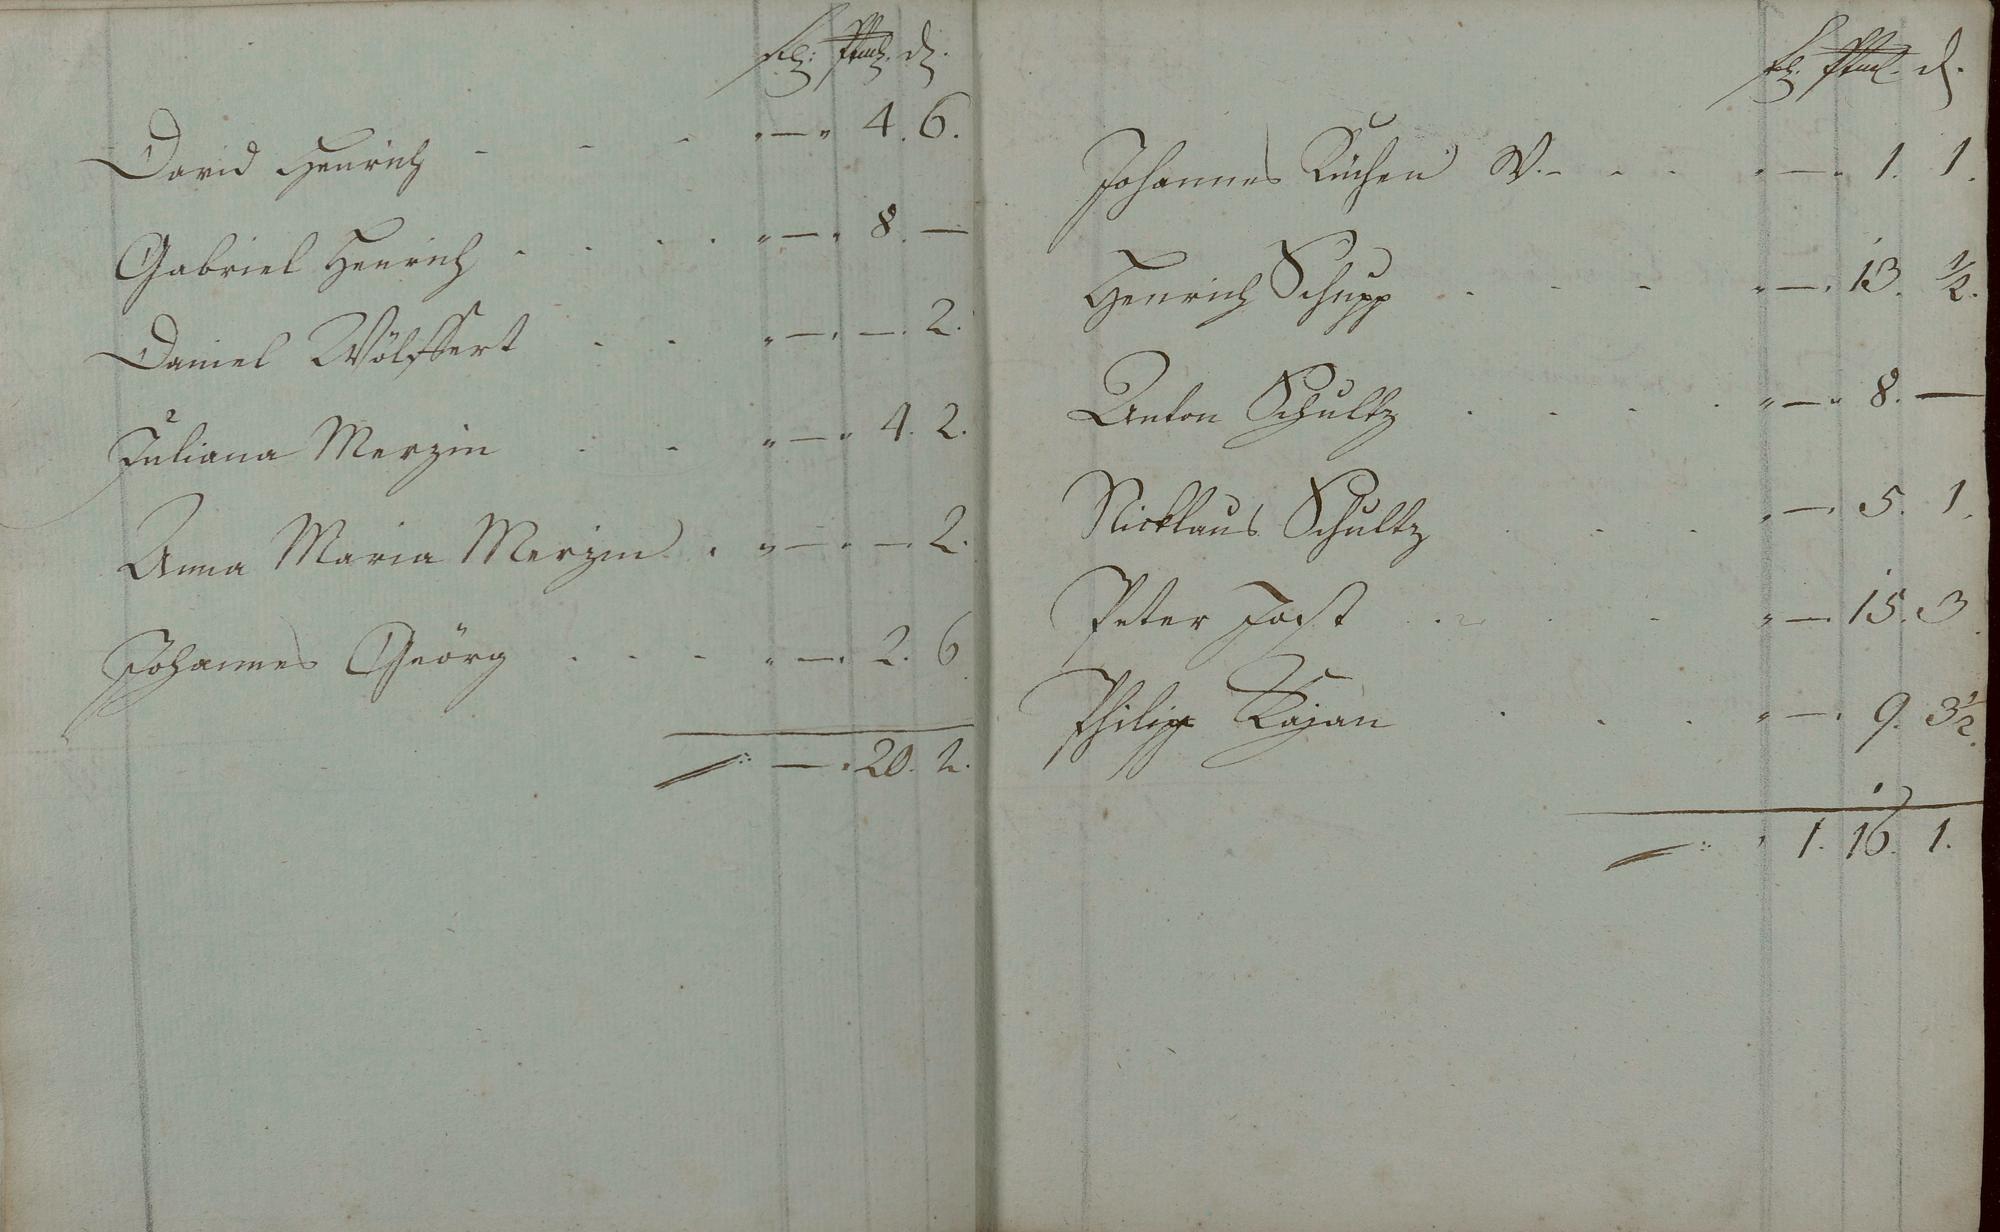 David Henrich - - - " — " 4. 6.
Gabriel Henrich - - - . " — " 8. —
Daniel Wölffert - - " — " —. 2.
Juliana Merzin - - " — " 4. 2.
Anna Maria Merzin . " — " —. 2.
Johannes Geörg - - - " — " 2. 6
— " 20. 2.
d.
Johannes Küchen W. - - - " — " 1. 1.
Henrich Schupp - - - " — " 13. 1/2.
Anton Schultz - - - . " — " 8. —
Nicklaus Schultz - - - " — " 5. 1.
Peter Jost - - - " — " 15. 3.
Philip Kajan - - - " — " 9. 3 1/2.
1. 16. 1.